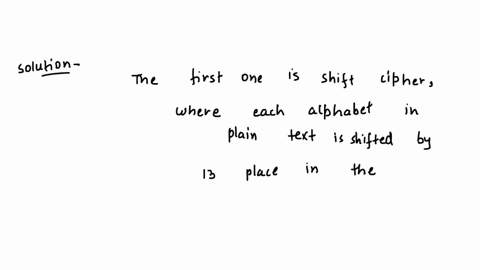 solution-
The first one is shift cipher,
where each alphabet in
plain text is shifted by
13 place in the